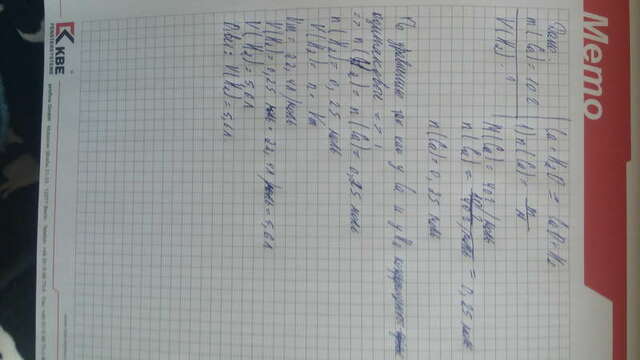 Memo
Дано:
m(Ca) = 10 г
V(H2) - ?
Ca + H2O = CaO + H2
1) n(Ca) = m/M
M(Ca) = 40 г/моль
n(Ca) = 10 г / 40 г/моль = 0,25 моль
n(Ca) = 0,25 моль
По уравнению так как у Ca и у H2
одинаковые =>
=> n(H2) = n(Ca) = 0,25 моль
n(H2) = 0,25 моль
V(H2) = n · Vm
Vm = 22,4 л/моль
V(H2) = 0,25 моль · 22,4 л/моль = 5,6 л
V(H2) = 5,6 л
Ответ: V(H2) = 5,6 л
KBE
FENSTERSYSTEME
profine GmbH